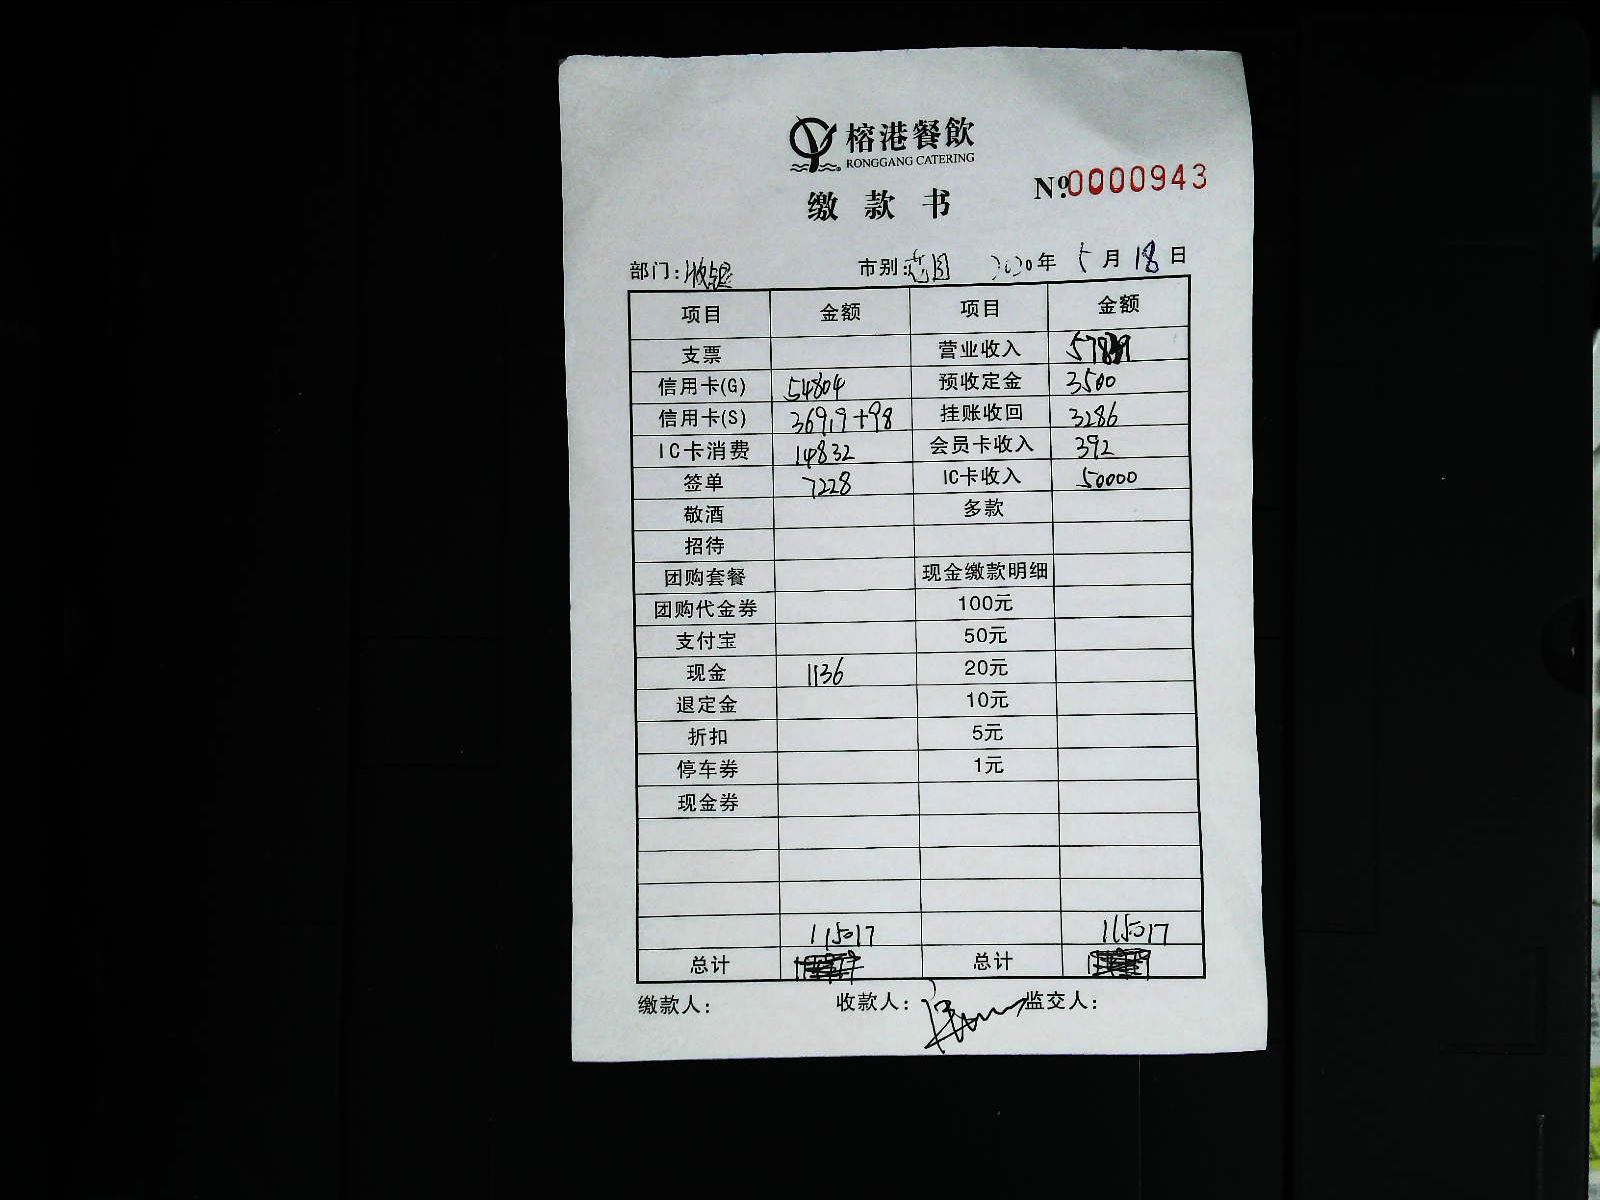 榕港餐飲
RONGGANG CATERING
缴款书
№0000943
部门:收银 市别: 2020年 5月 18日
项目 金额 项目 金额
支票 营业收入 57839
信用卡(G) 54804 预收定金 3500
信用卡(S) 36919+98 挂账收回 3286
IC卡消费 14832 会员卡收入 392
签单 7228 IC卡收入 50000
敬酒 多款
招待
团购套餐 现金缴款明细
团购代金券 100元
支付宝 50元
现金 1136 20元
退定金 10元
折扣 5元
停车券 1元
现金券
115017 115017
总计 总计
缴款人: 收款人: 监交人: